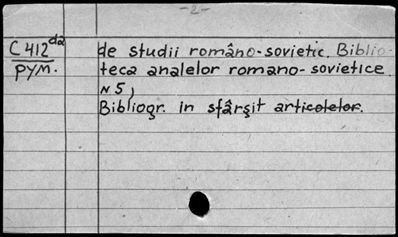 -2-
C 412 d2
рум.
de studii româno-sovietic. Biblio-
teca analelor romano-sovietice
N 5)
Bibliogr. in sfârşit articolelor.